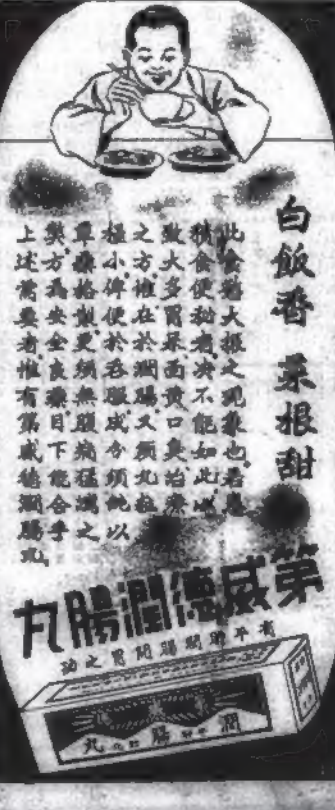 白飯香 菜根甜
此食慾大振之現象也若患
積食便秘者決不能如此
致大多胃呆面黃口臭治療
之方惟在於潤腸又須丸粒
極小俾便於吞嚥成分須純以
草藥格製更須無腹痛猛瀉之
弊方為安全良藥目下能合乎
上述需要者惟有第威德潤腸丸
第威德潤腸丸
有平肝潤腸開胃之功
潤腸丸